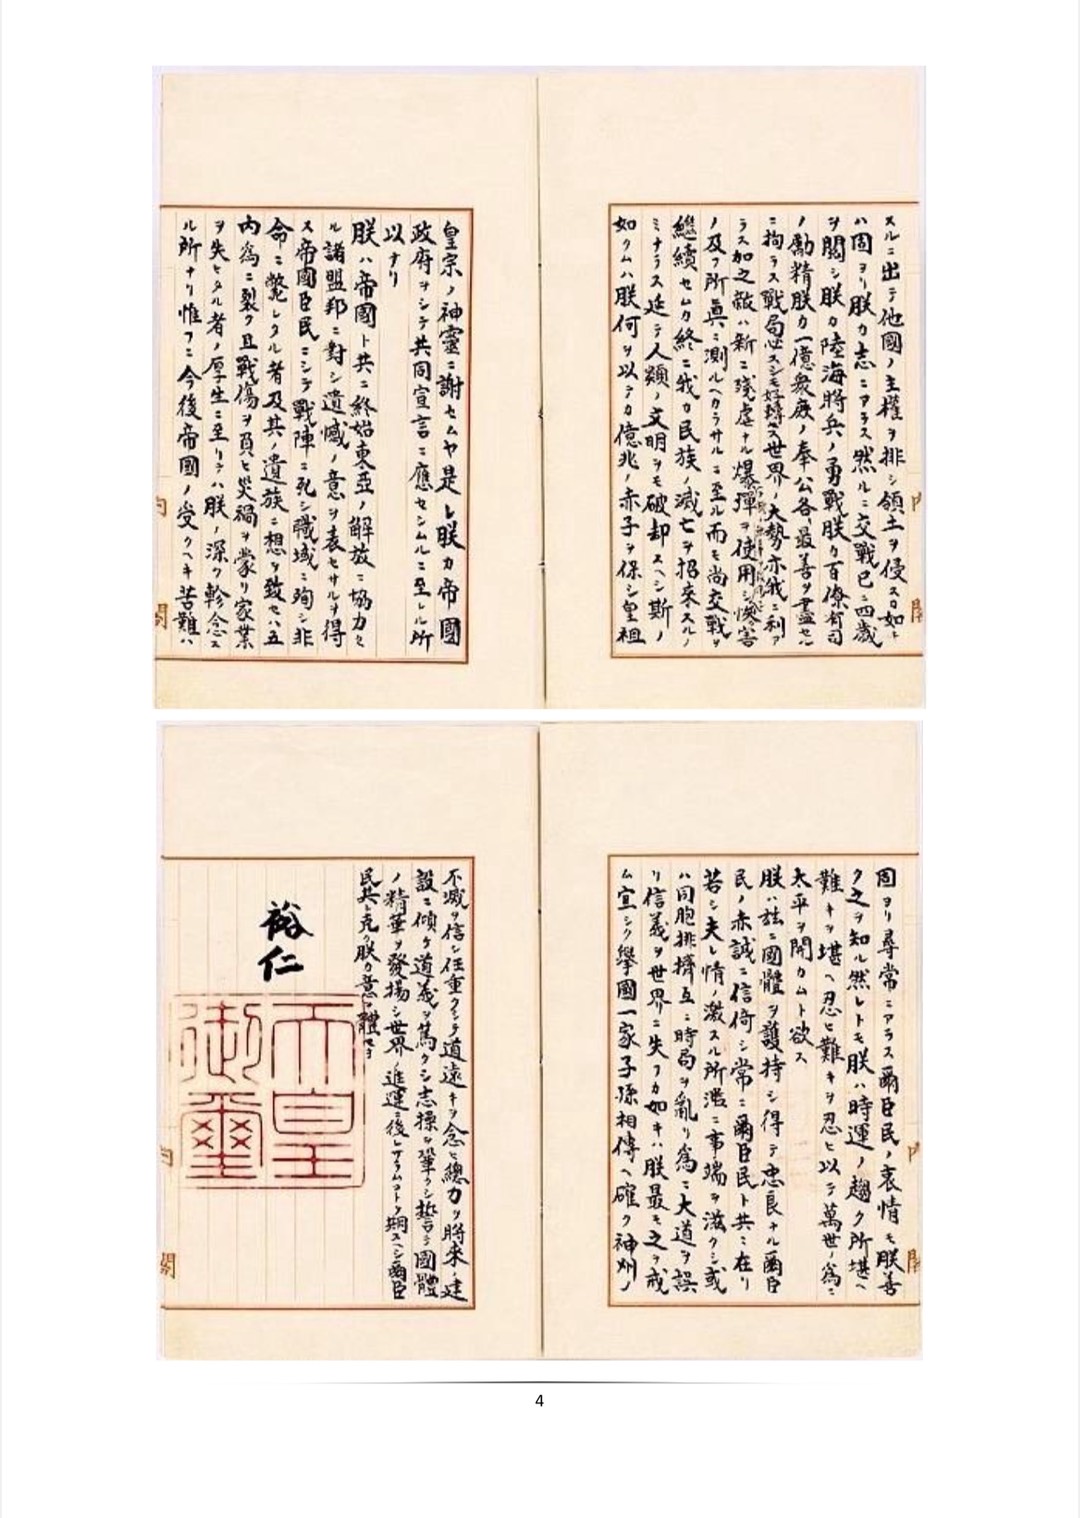 スルニ出テ他國ノ主權ヲ排シ領土ヲ侵スカ如キ
ハ固ヨリ朕カ志ニアラス然ルニ交戰已ニ四歳
ヲ閲シ朕カ陸海將兵ノ勇戰朕カ百僚有司
ノ勵精朕カ一億衆庶ノ奉公各最善ヲ盡セル
ニ拘ラス戰局必スシモ好轉セス世界ノ大勢亦我ニ利ア
ラス加之敵ハ新ニ殘虐ナル爆彈ヲ使用シ慘害
ノ及フ所眞ニ測ルヘカラサルニ至ル而モ尚交戰ヲ
繼續セムカ終ニ我カ民族ノ滅亡ヲ招來スルノ
ミナラス延テ人類ノ文明ヲモ破却スヘシ斯ノ
如クムハ朕何ヲ以テカ億兆ノ赤子ヲ保シ皇祖
內閣
皇宗ノ神靈ニ謝セムヤ是レ朕カ帝國
政府ヲシテ共同宣言ニ應セシムルニ至レル所
以ナリ
朕ハ帝國ト共ニ終始東亞ノ解放ニ協力セ
ル諸盟邦ニ對シ遺憾ノ意ヲ表セサルヲ得
ス帝國臣民ニシテ戰陣ニ死シ職域ニ殉シ非
命ニ斃レタル者及其ノ遺族ニ想ヲ致セハ五
內爲ニ裂ク且戰傷ヲ負ヒ災禍ヲ蒙リ家業
ヲ失ヒタル者ノ厚生ニ至リテハ朕ノ深ク軫念ス
ル所ナリ惟フニ今後帝國ノ受クヘキ苦難ハ
內閣
固ヨリ尋常ニアラス爾臣民ノ衷情モ朕善
ク之ヲ知ル然レトモ朕ハ時運ノ趨ク所堪ヘ
難キヲ堪ヘ忍ヒ難キヲ忍ヒ以テ萬世ノ爲ニ
太平ヲ開カムト欲ス
朕ハ茲ニ國體ヲ護持シ得テ忠良ナル爾臣
民ノ赤誠ニ信倚シ常ニ爾臣民ト共ニ在リ
若シ夫レ情ノ激スル所濫ニ事端ヲ滋クシ或
ハ同胞排擠互ニ時局ヲ亂リ爲ニ大道ヲ誤
リ信義ヲ世界ニ失フカ如キハ朕最モ之ヲ戒
ム宜シク擧國一家子孫相傳ヘ確ク神州ノ
內閣
不滅ヲ信シ任重クシテ道遠キヲ念ヒ總力ヲ將來ノ建
設ニ傾ケ道義ヲ篤クシ志操ヲ鞏クシ誓テ國體
ノ精華ヲ發揚シ世界ノ進運ニ後レサラムコトヲ期スヘシ爾臣
民其レ克ク朕カ意ヲ體セヨ
裕仁
天皇
御璽
內閣
4